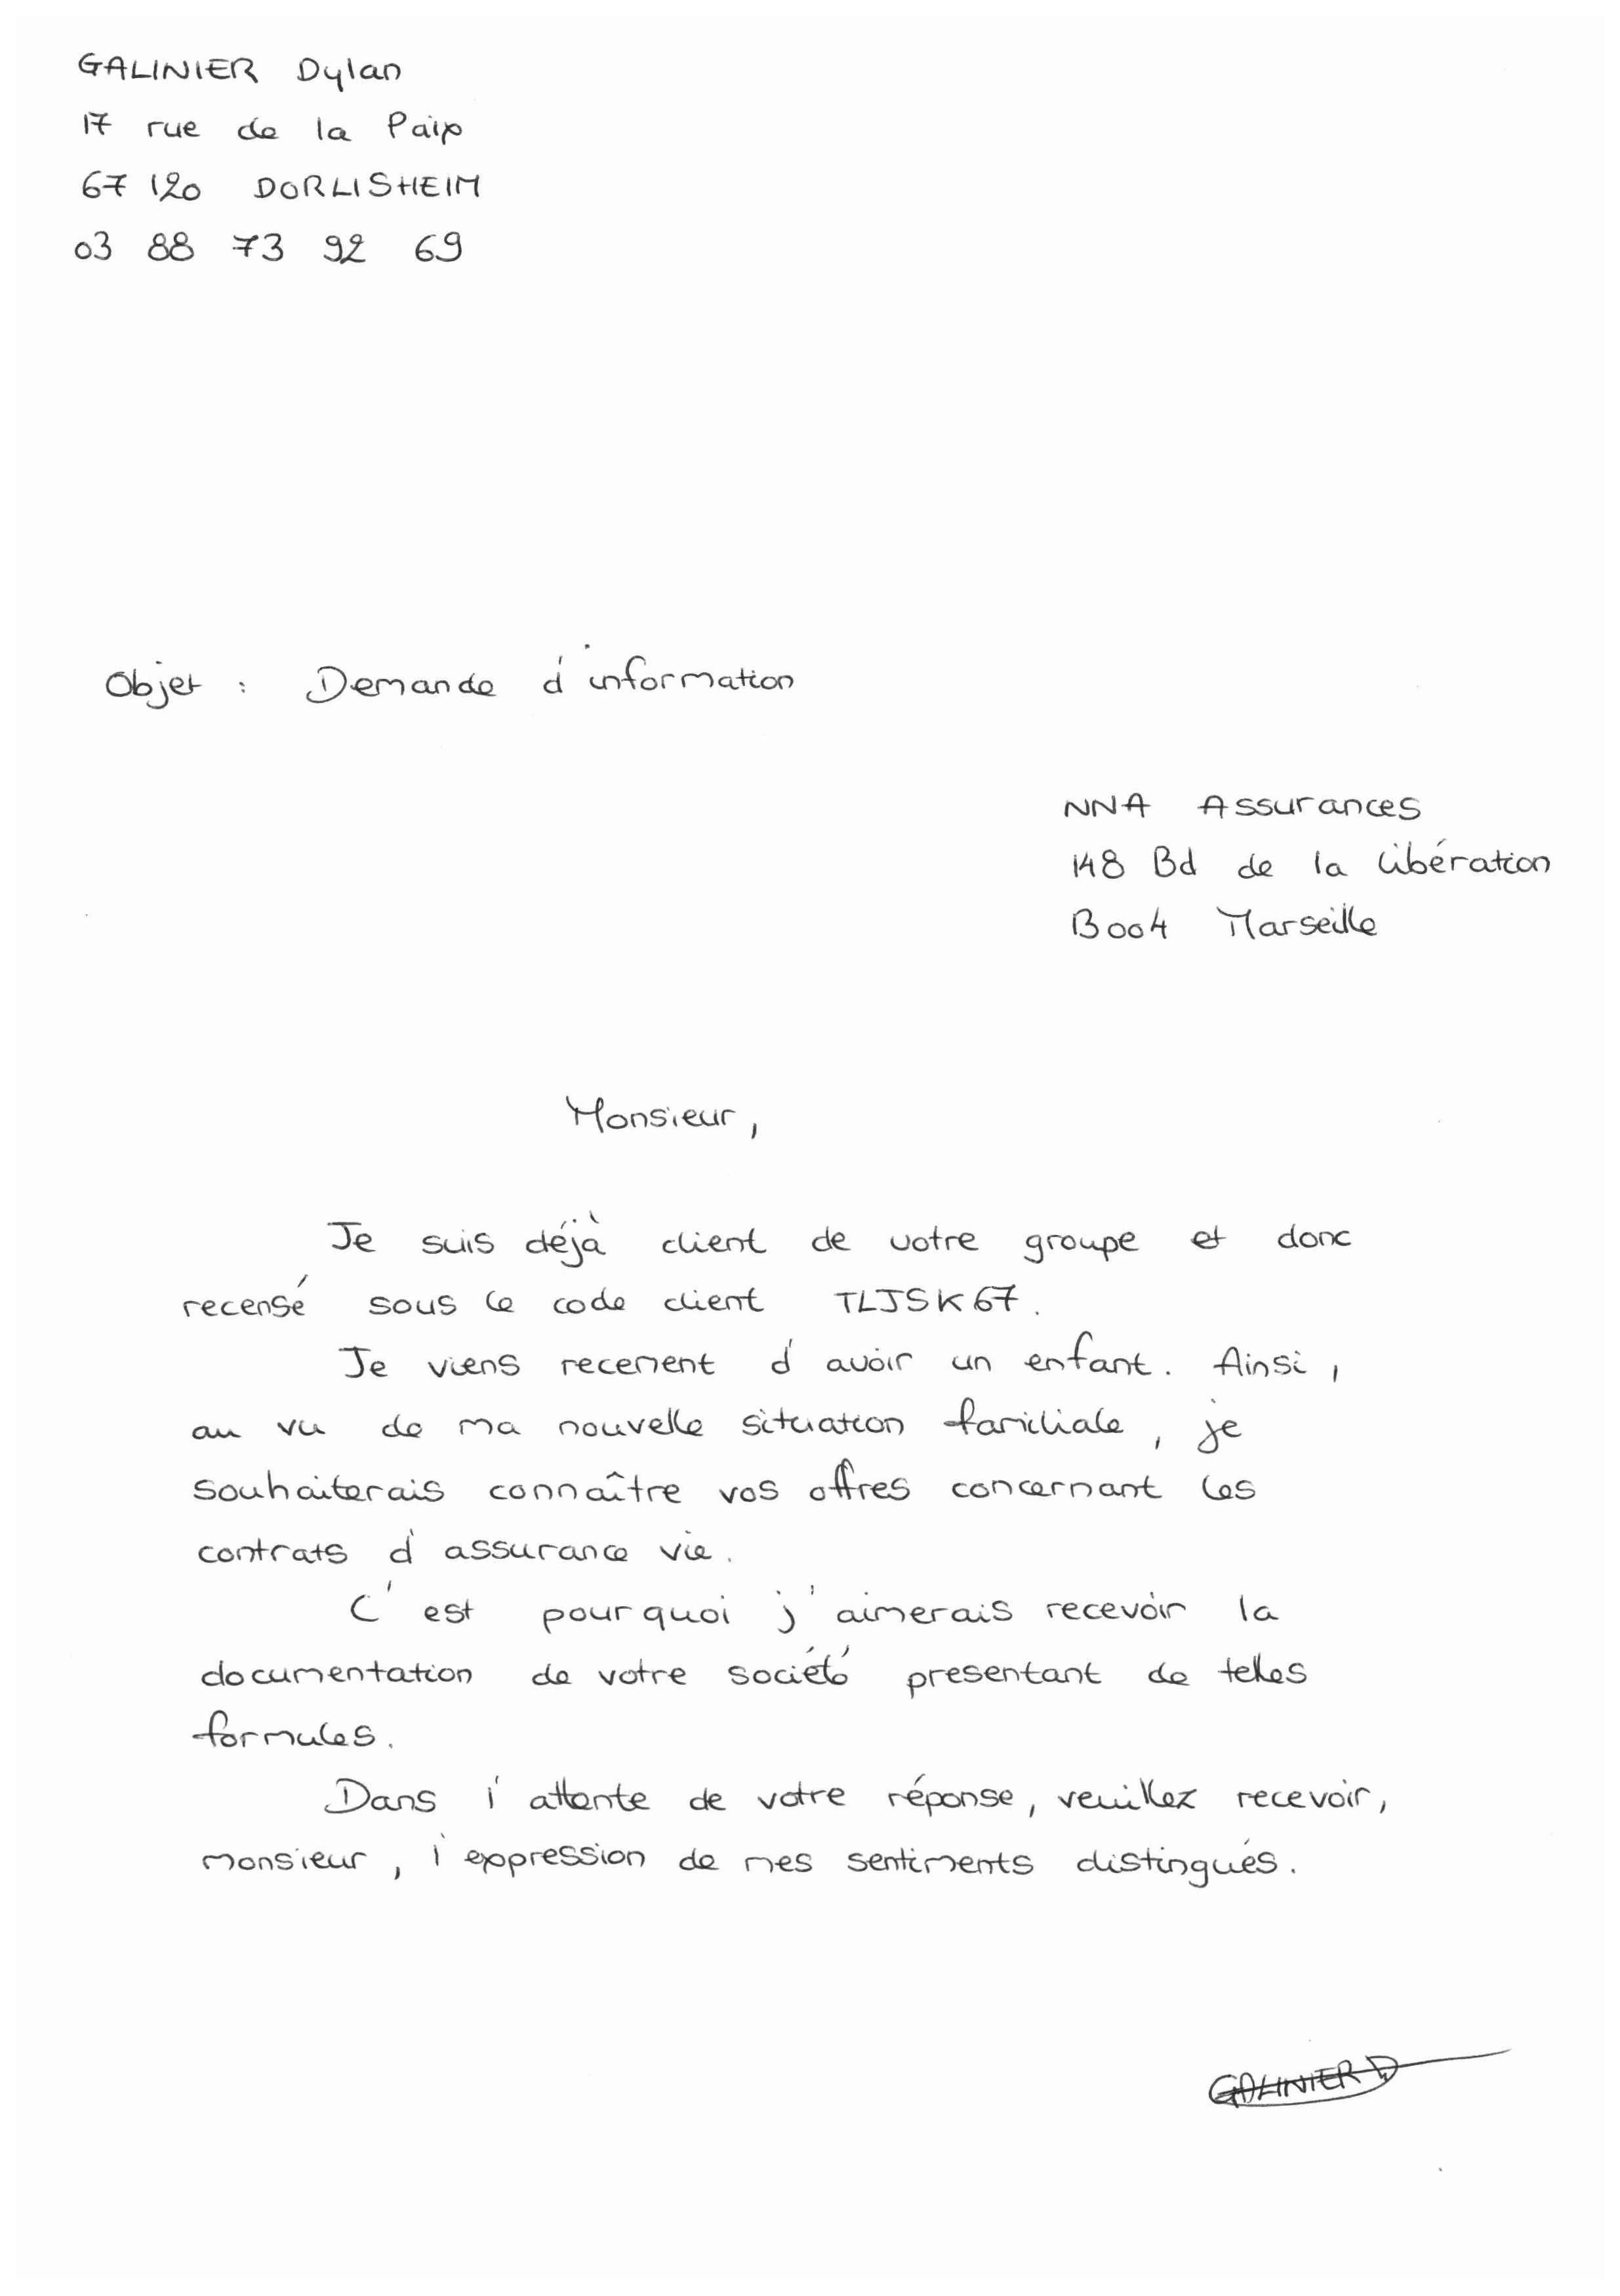 GALINIER Dylan
17 rue de la Paix
67 120 DORLISHEIM
03 88 73 92 69
Objet : Demande d'information
NNA Assurances
148 Bd de la libération
13004 Marseille
Monsieur,
Je suis déjà client de votre groupe et donc
recensé sous le code client TLJSK67.
Je viens recement d'avoir un enfant. Ainsi,
au vu de ma nouvelle situation familiale, je
souhaiterais connaître vos offres concernant les
contrats d'assurance vie.
C'est pourquoi j'aimerais recevoir la
documentation de votre société presentant de telles
formules.
Dans l'attente de votre réponse, veuillez recevoir,
monsieur, l'expression de mes sentiments distingués.
GALINIER D